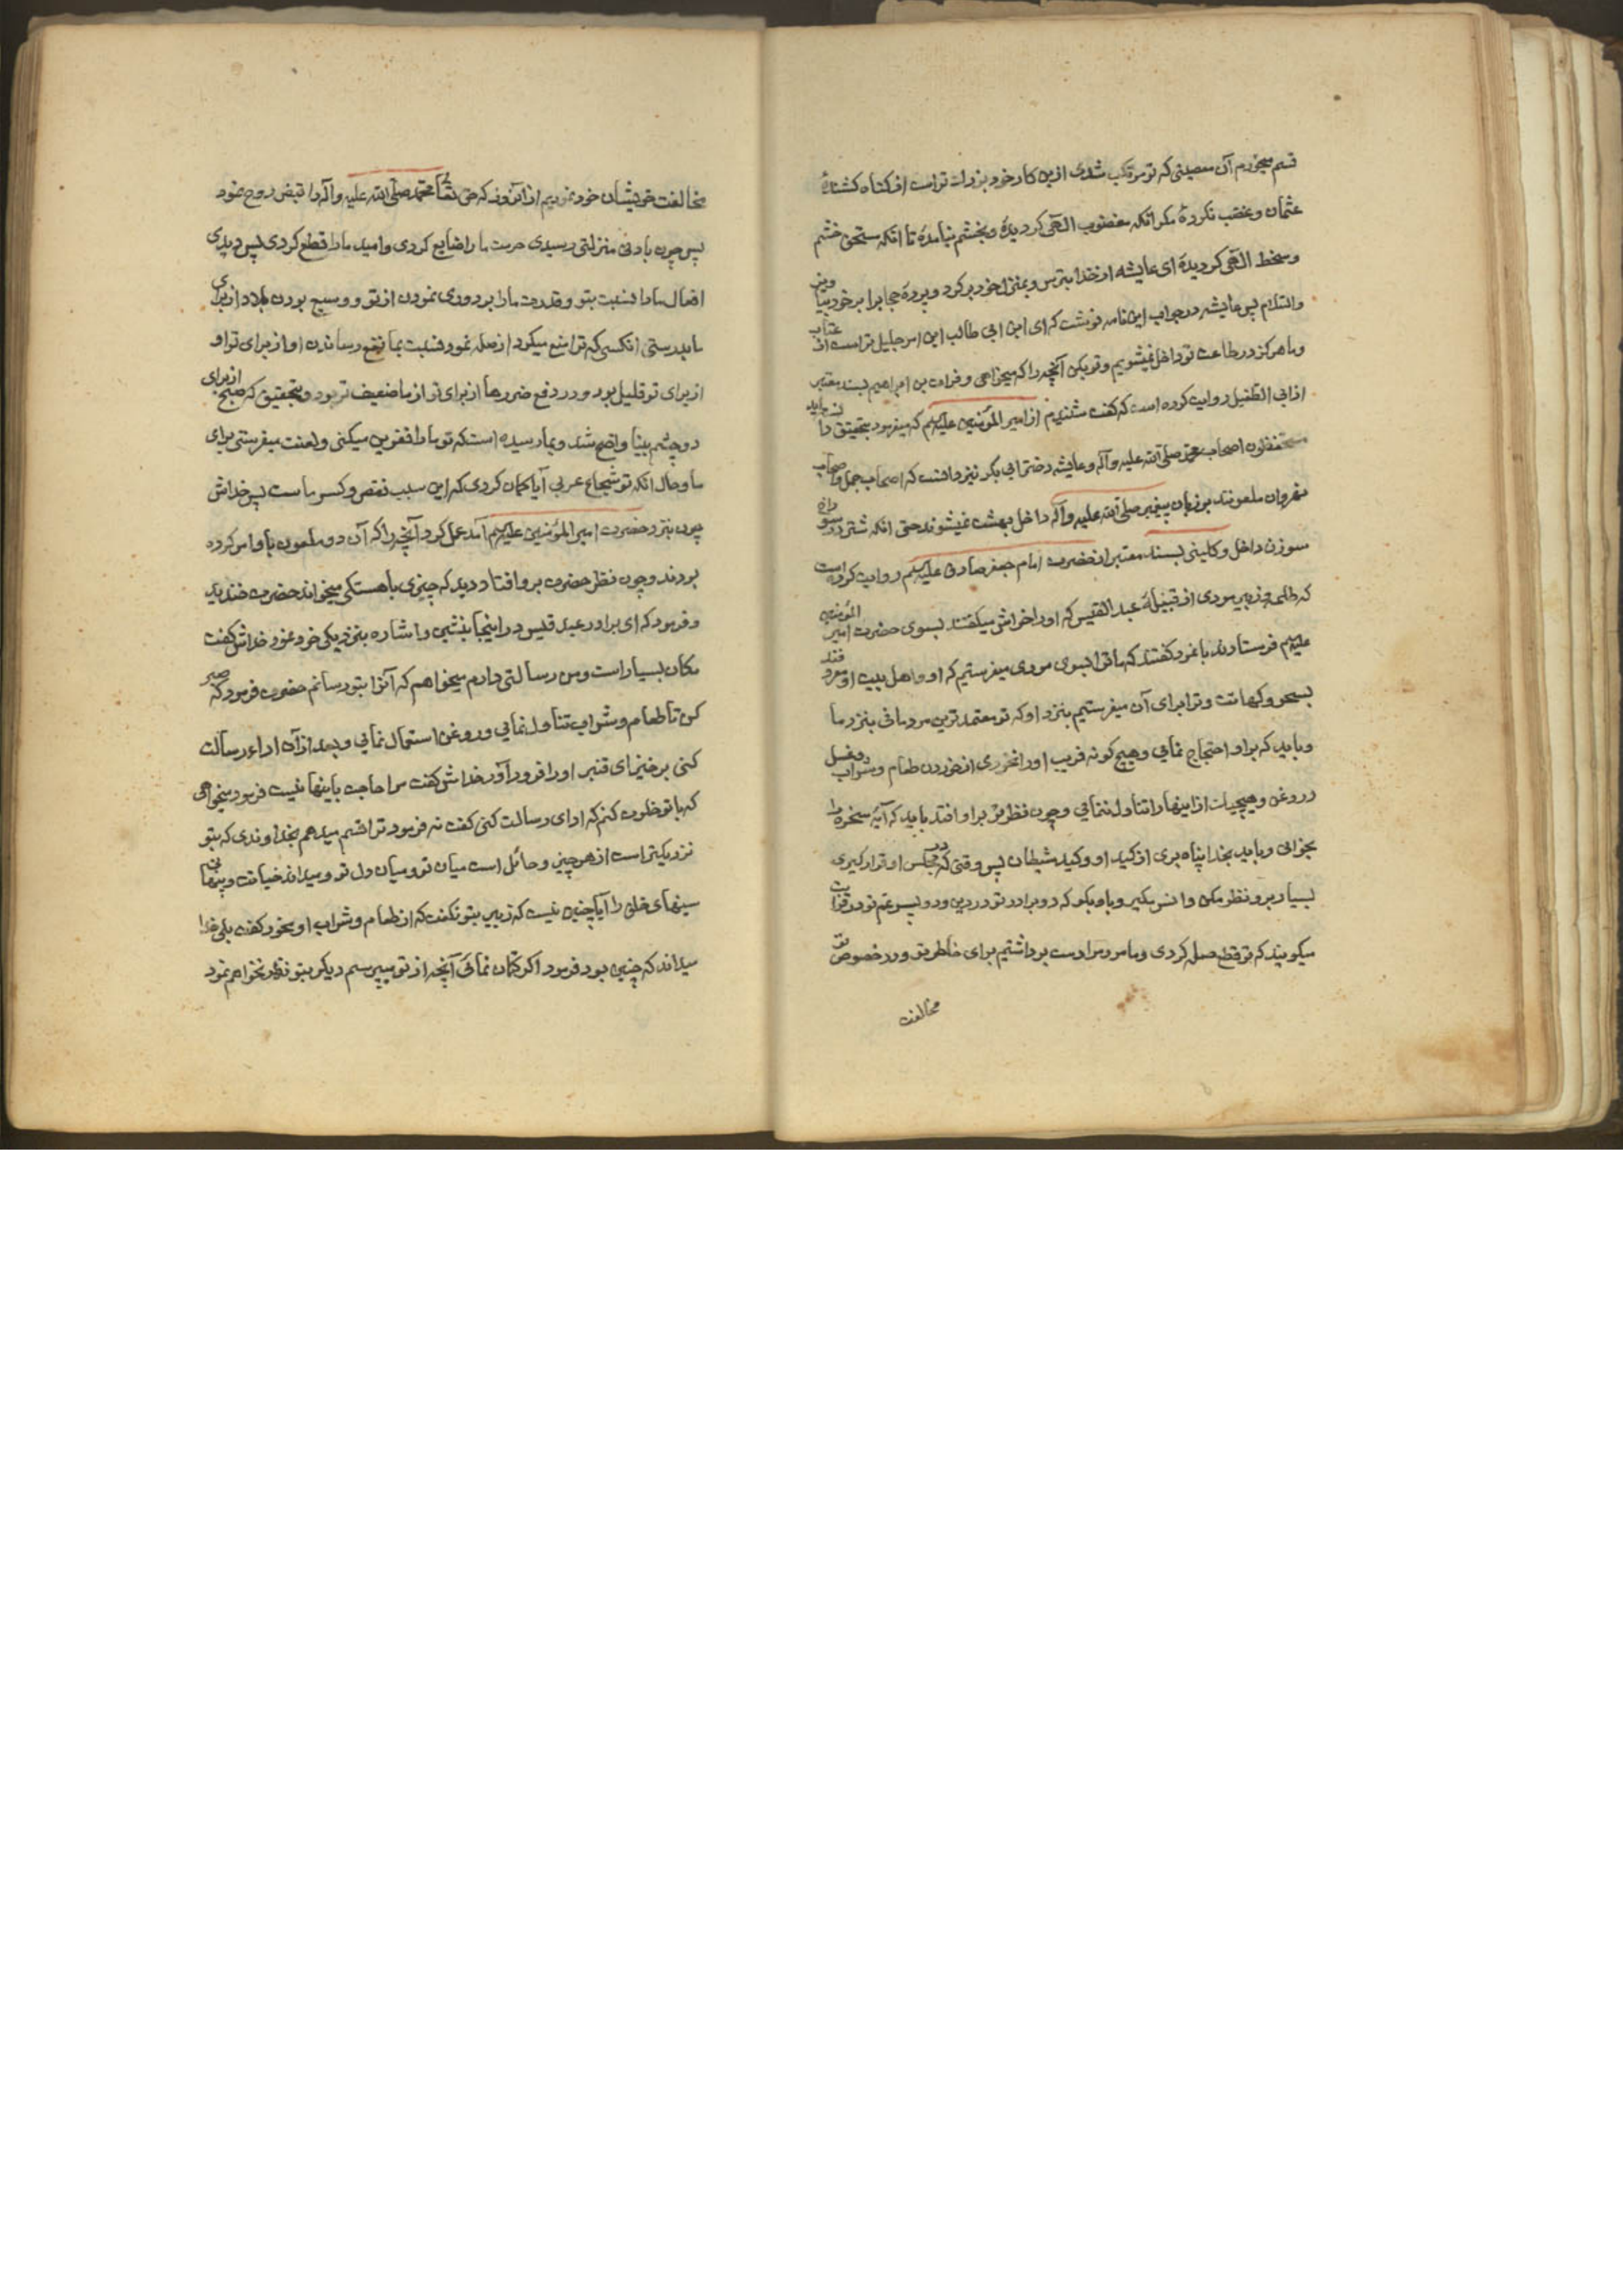 قسم میخورم آن معصیتی که تو مرتکب شدی ازین کار خود بزرك تراست از کناه کشندهٔ
عثمان وغضب نکردهٔ مکر انکه مغضوب الهی کردیدهٔ وبخشم نیامدهٔ تا انکه مستحق خشم
وسخط الهی کردیدهٔ ای عایشه از خدا بترس وبمنزل خود برکرد وپردهٔ حجابرا برخود بپا
والسلام پس عایشه درجواب این نامه نوشت که ای ابن ابی طالب این امر جلیل تراست از عتاب
وما هرکز در طاعت تو داخل نمیشویم وتو بکن آنچه را که میخواهی وفرات بن ابراهیم بسند معتبر
از ابی الطفیل روایت کرده است که کفت شنیدم از امیر المؤمنین علیه السلم که میفرمود بتحقیق دا
اصحاب محمد صلی الله علیه وآله وعایشه دختر ابی بکر نیز دانست که اصحاب جمل واصحاب
نهروان ملعونند بر زبان پیغمبر صلی الله علیه وآله داخل بهشت نمیشوند حتی انکه شتر در سوراخ
سوزن داخل وکلینی بسند معتبر از حضرت امام جعفر صادق علیه السلم روایت کرده است
که طلحه وزبیر مردی از قبیلهٔ عبد القیس که اورا خداش میکفتند بسوی حضرت امیر المؤمنین
علیه السلم فرستادند باو کفتند که ما ترا بسوی مردی میفرستیم که او واهل بیت او معروفند
بسحر وکهانت وترا برای آن میفرستیم بنزد او که تو معتمد ترین مردمانی بنزد ما
وباید که براو احتجاج نمایی وهیچ کونه فریب اورا نخوری از خوردن طعام وشراب وعسل
وروغن وهیچیك از اینها را تناول ننمایی وچون نظر تو براو افتد باید که آیهٔ سخره را
بخوانی وباید بخدا پناه بری از کید او وکید شیطان پس وقتی که در مجلس او قرار کیری
بسیار برو نظر مکن وانس مکیر وباو بکو که دو برادر تو در دین ودو پسر عم تو در قرابت
میکویند که تو قطع صله کردی وما مردمرا دست برداشتیم برای خاطر تو ودر خصوص تو
مخالفت
مخالفت خویشان خود نمودیم از آنروز که حق تعالی محمد صلی الله علیه وآله را قبض روح نمود
پس چون بادنی منزلتی رسیدی حرمت ما را ضایع کردی وامید ما را قطع کردی پس دیدی
افعال ما را نسبت بتو وقدرت ما را بر دوری نمودن از تو ووسیع بودن بلاد از برای
ما بدرستی انکسی که ترا منع میکرد از صله نمود نسبت بما نفع رساندن او از برای تو او
از برای تو قلیل بود ودر دفع ضررها از برای تو از ما ضعیف تر بود وبتحقیق که صبح از برای
دو چشم بینا واضح شد وبما رسیده است که تو ما را نفرین میکنی ولعنت میفرستی برای
ما وحال انکه تو شجاع عربی آیا کمان کردی که این سبب نقص وکسر ماست پس خداش
چون بنزد حضرت امیر المؤمنین علیه السلم آمد عمل کرد آنچه را که آن دو ملعون باو امر کرده
بودند وچون نظر حضرت برو افتاد دید که چیزی باهستکی میخواند حضرت خندید
وفرمود که ای برادر عبد قیس در اینجا بنشین واشاره بنزدیکی خود نمود خداش کفت
مکان بسیار است ومن رسالتی دارم میخواهم که آنرا بتو رسانم حضرت فرمود که صبر
کن تا طعام وشراب تناول نمایی وروغن استعمال نمایی وبعد از آن اداء رسالت
کنی برخیز ای قنبر اورا فرود آور خداش کفت مرا حاجت باینها نیست فرمود میخواهی
که با تو خلوت کنم که ادای رسالت کنی کفت نه فرمود ترا قسم میدهم بخداوندی که بتو
نزدیکتر است از هر چیز وحائل است میان تو ومیان دل تو ومیداند خیانت وپنهانی
سینهای خلق را آیا چنین نیست که زبیر بتو نکفت که از طعام وشراب او مخور کفت بلی خدا
میداند که چنین بود فرمود اکر کتمان نمائی آنچه از تو میپرسم دیکر بتو نظر نخواهم نمود